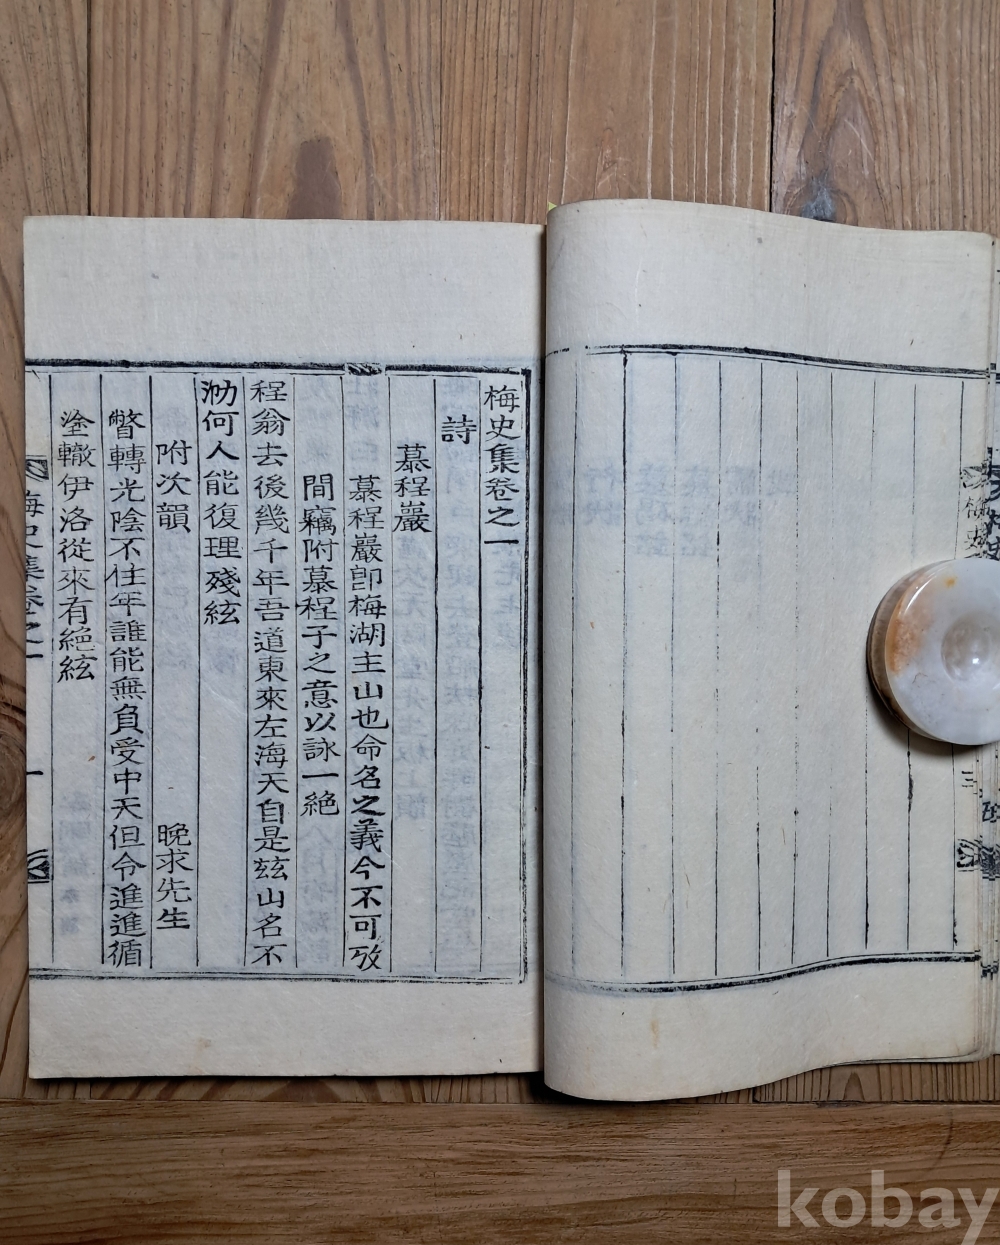 梅史集卷之一
詩
慕程巖
慕程巖卽梅湖主山也命名之義今不可攷
間竊附慕程子之意以詠一絶
程翁去後幾千年吾道東來左海天自是玆山名不
泐何人能復理殘絃
附次韻 晩求先生
瞥轉光陰不住年誰能無負受中天但令進進循
塗轍伊洛從來有絶絃
梅史集卷之一 一
kobay